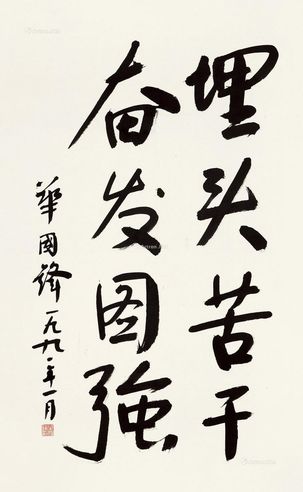 埋头苦干
奋发图強
華国鋒一九九一年一月